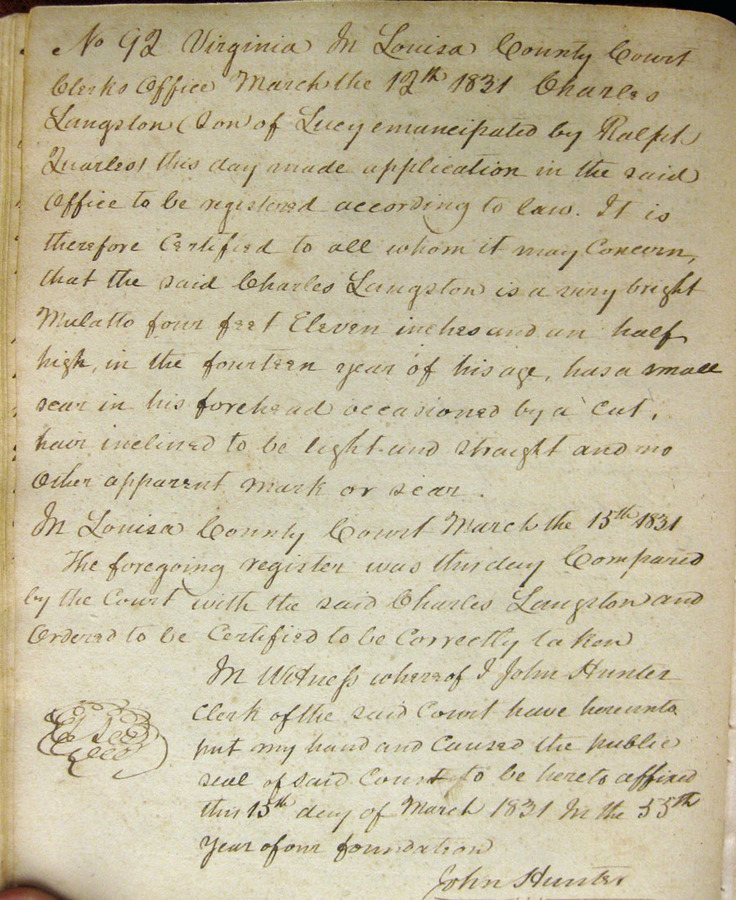 No 92 Virginia In Louisa County Court
Clerks Office March the 12th 1831 Charles
Langston (Son of Lucy emancipated by Ralph
Quarles) this day made application in the said
Office to be registered according to law. It is
therefore Certified to all whom it may Concern,
that the said Charles Langston is a very bright
Mulatto four feet Eleven inches and an half
high, in the fourteen year of his age, has a small
scar in his forehead occasioned by a cut,
hair inclined to be light and straight and no
other apparent mark or scar.
In Louisa County Court March the 15th 1831
The foregoing register was this day Compared
by the Court with the said Charles Langston and
Ordered to be Certified to be Correctly taken
In Witness whereof I John Hunter
Clerk of the said Court have hereunto
put my hand and caused the public
seal of said Court to be hereto affixed
this 15th day of March 1831 In the 55th
Year of our foundation
John Hunter